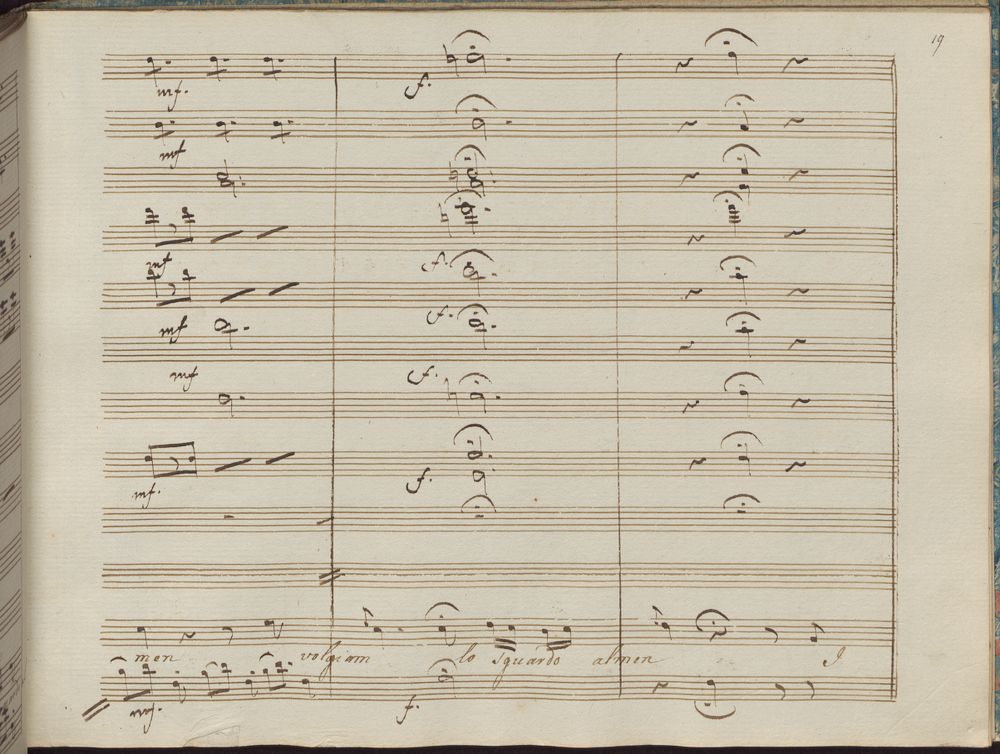 19
mf. f.
mf
mf f.
mf f.
mf f.
mf. f.
men volgiam lo sguardo almen I
mf. f.